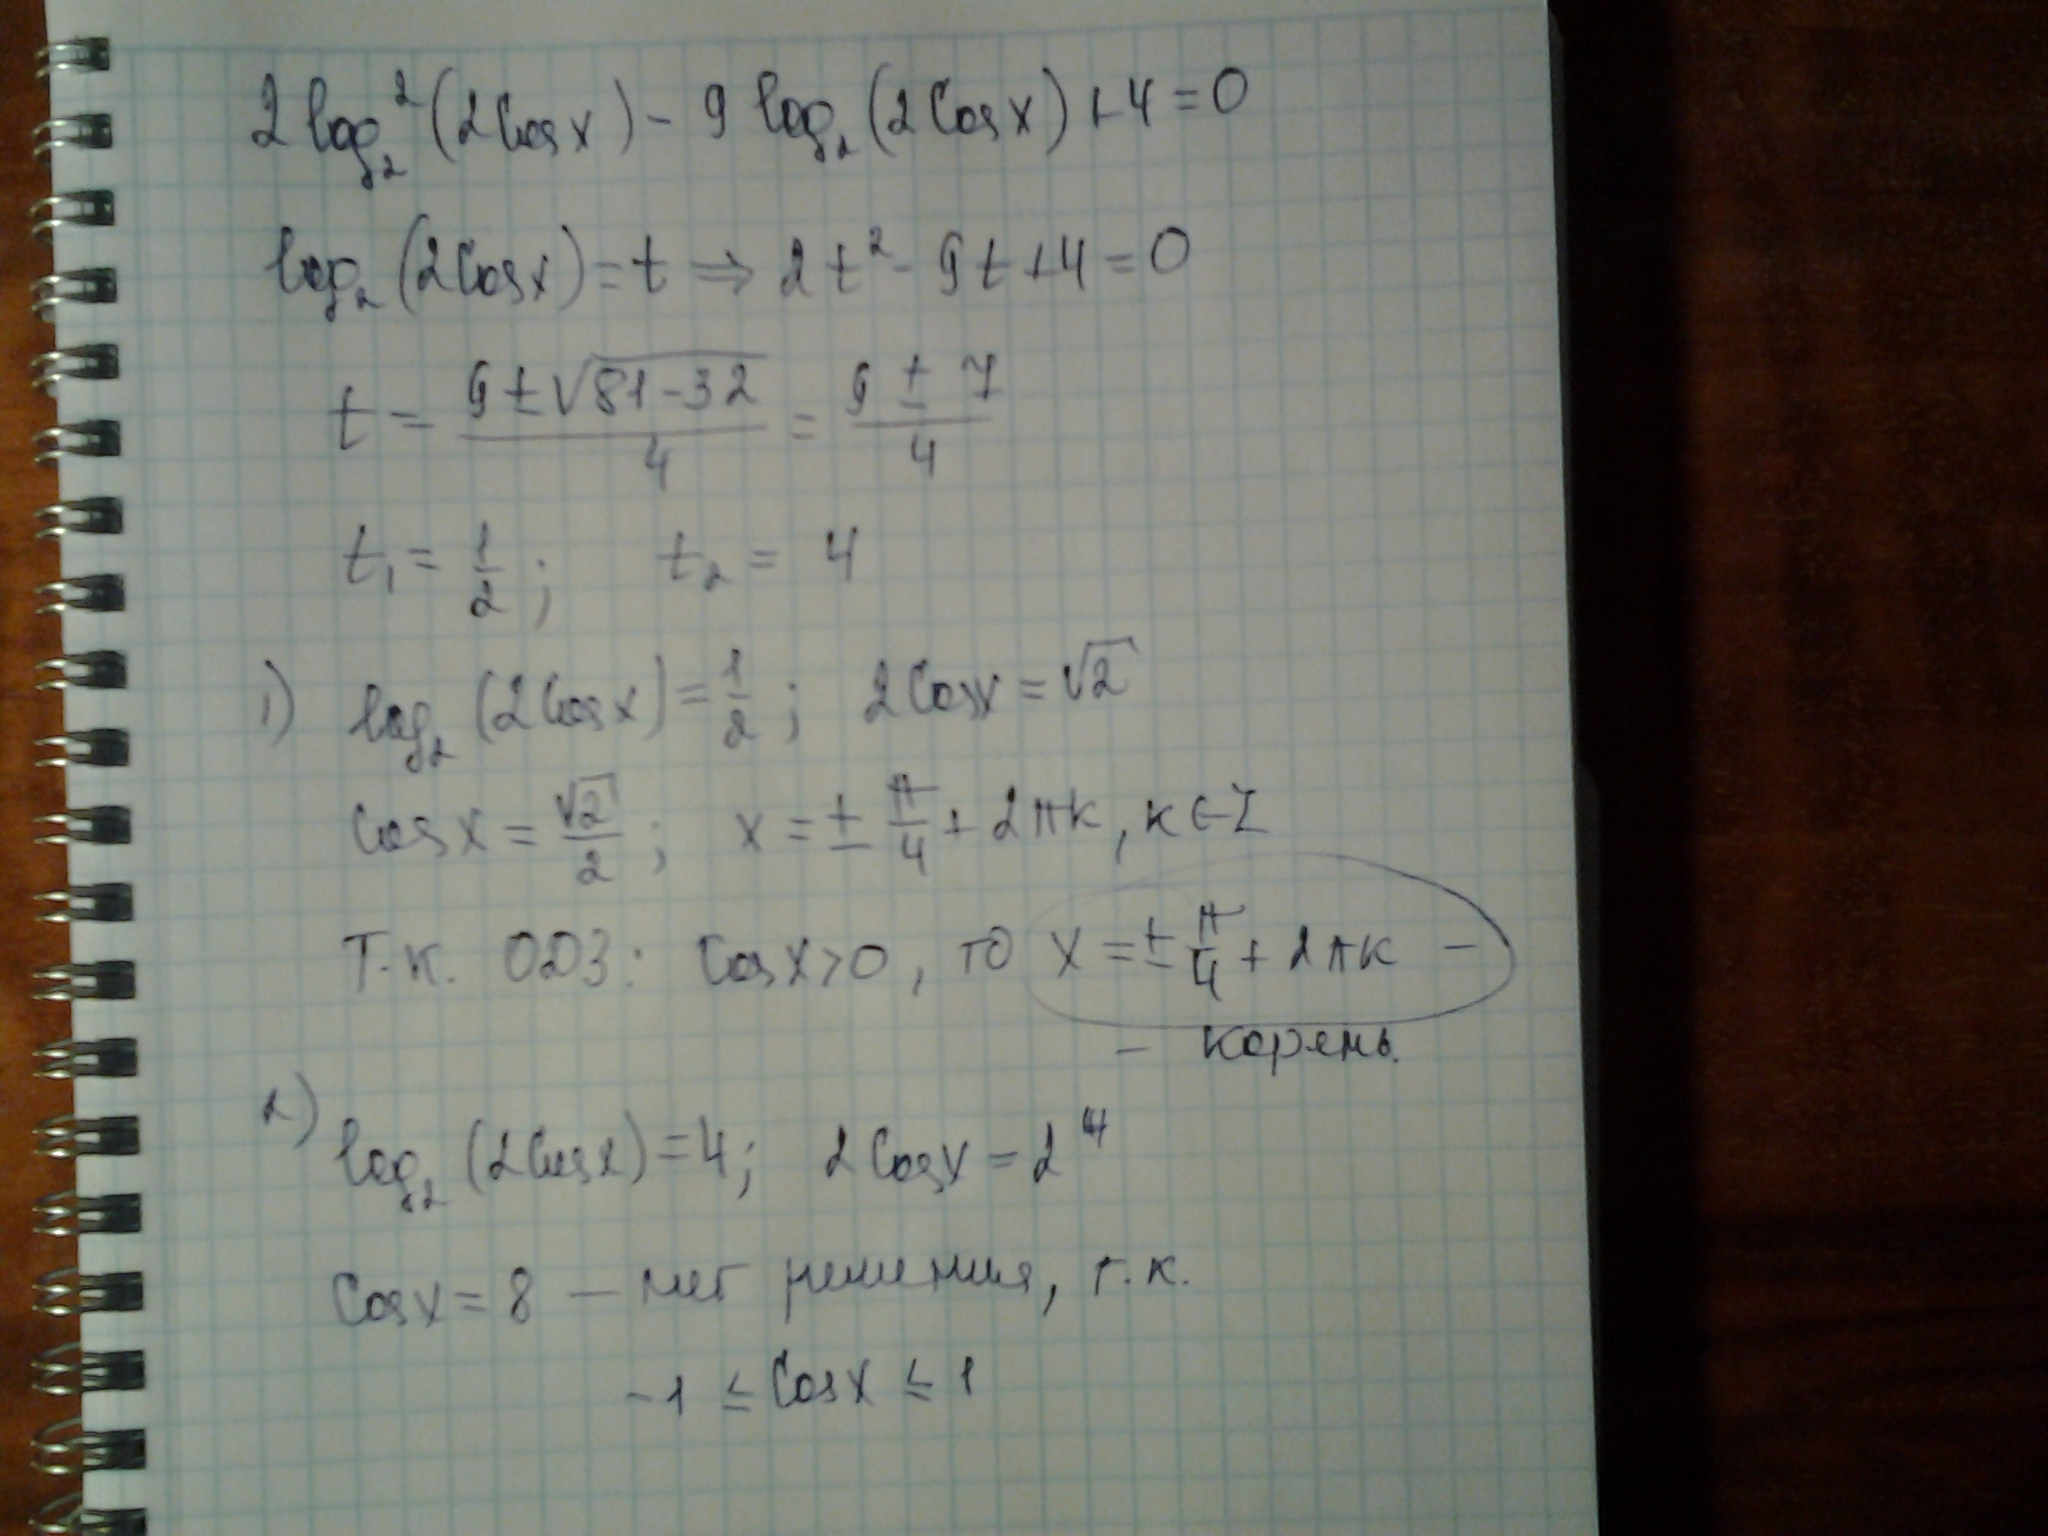 2 log₂² (2cos x) - 9 log₂ (2cos x) + 4 = 0
log₂ (2cos x) = t ⇒ 2t² - 9t + 4 = 0
t = (9 ± √(81-32))/4 = (9 ± 7)/4
t₁ = 1/2; t₂ = 4
1) log₂ (2cos x) = 1/2; 2cos x = √2
cos x = √2/2; x = ± π/4 + 2πk, k ∈ Z
Т.к. ОДЗ: cos x > 0, то x = ± π/4 + 2πk -
- корень.
2) log₂ (2cos x) = 4; 2cos x = 2⁴
cos x = 8 — нет решения, т.к.
-1 ≤ cos x ≤ 1